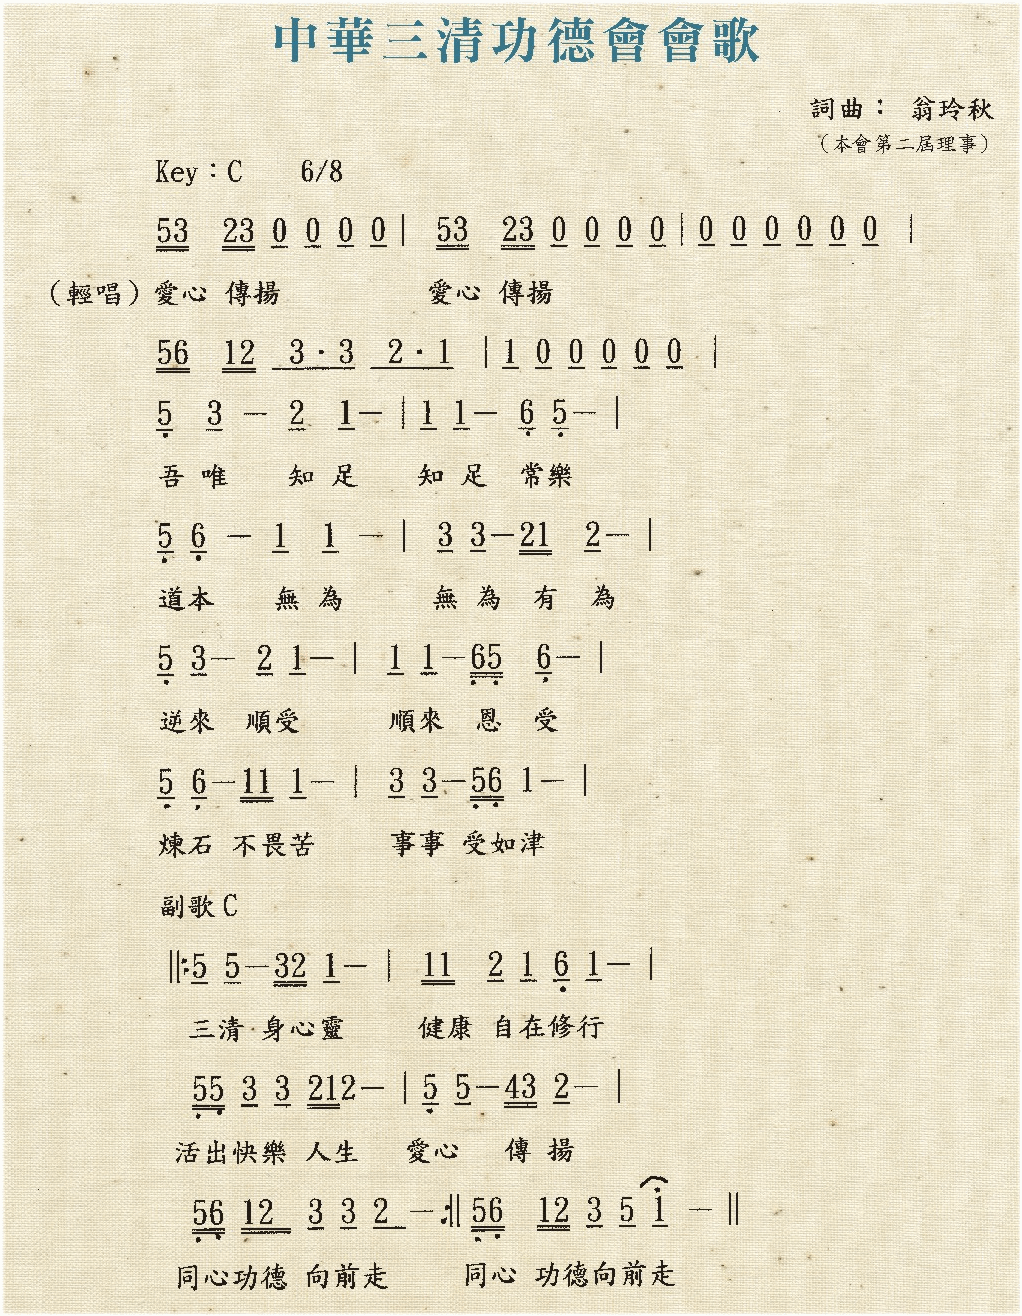 中華三清功德會會歌
詞曲： 翁玲秋
（本會第二屆理事）
Key：C 6/8
53 23 0 0 0 0 | 53 23 0 0 0 0 | 0 0 0 0 0 0 |
（輕唱）愛心 傳揚 愛心 傳揚
56 12 3·3 2·1 | 1 0 0 0 0 0 |
5 3 — 2 1— | 1 1— 6 5— |
吾 唯 知 足 知 足 常樂
5 6 — 1 1 — | 3 3—21 2— |
道本 無 為 無 為 有 為
5 3— 2 1— | 1 1—65 6— |
逆來 順受 順來 恩 受
5 6—11 1— | 3 3—56 1— |
煉石 不畏苦 事事 受如津
副歌 C
‖:5 5—32 1— | 11 2 1 6 1— |
三清 身心靈 健康 自在修行
55 3 3 212— | 5 5—43 2— |
活出快樂 人生 愛心 傳 揚
56 12 3 3 2 —:‖ 56 12 3 5 1 — ‖
同心功德 向前走 同心 功德向前走